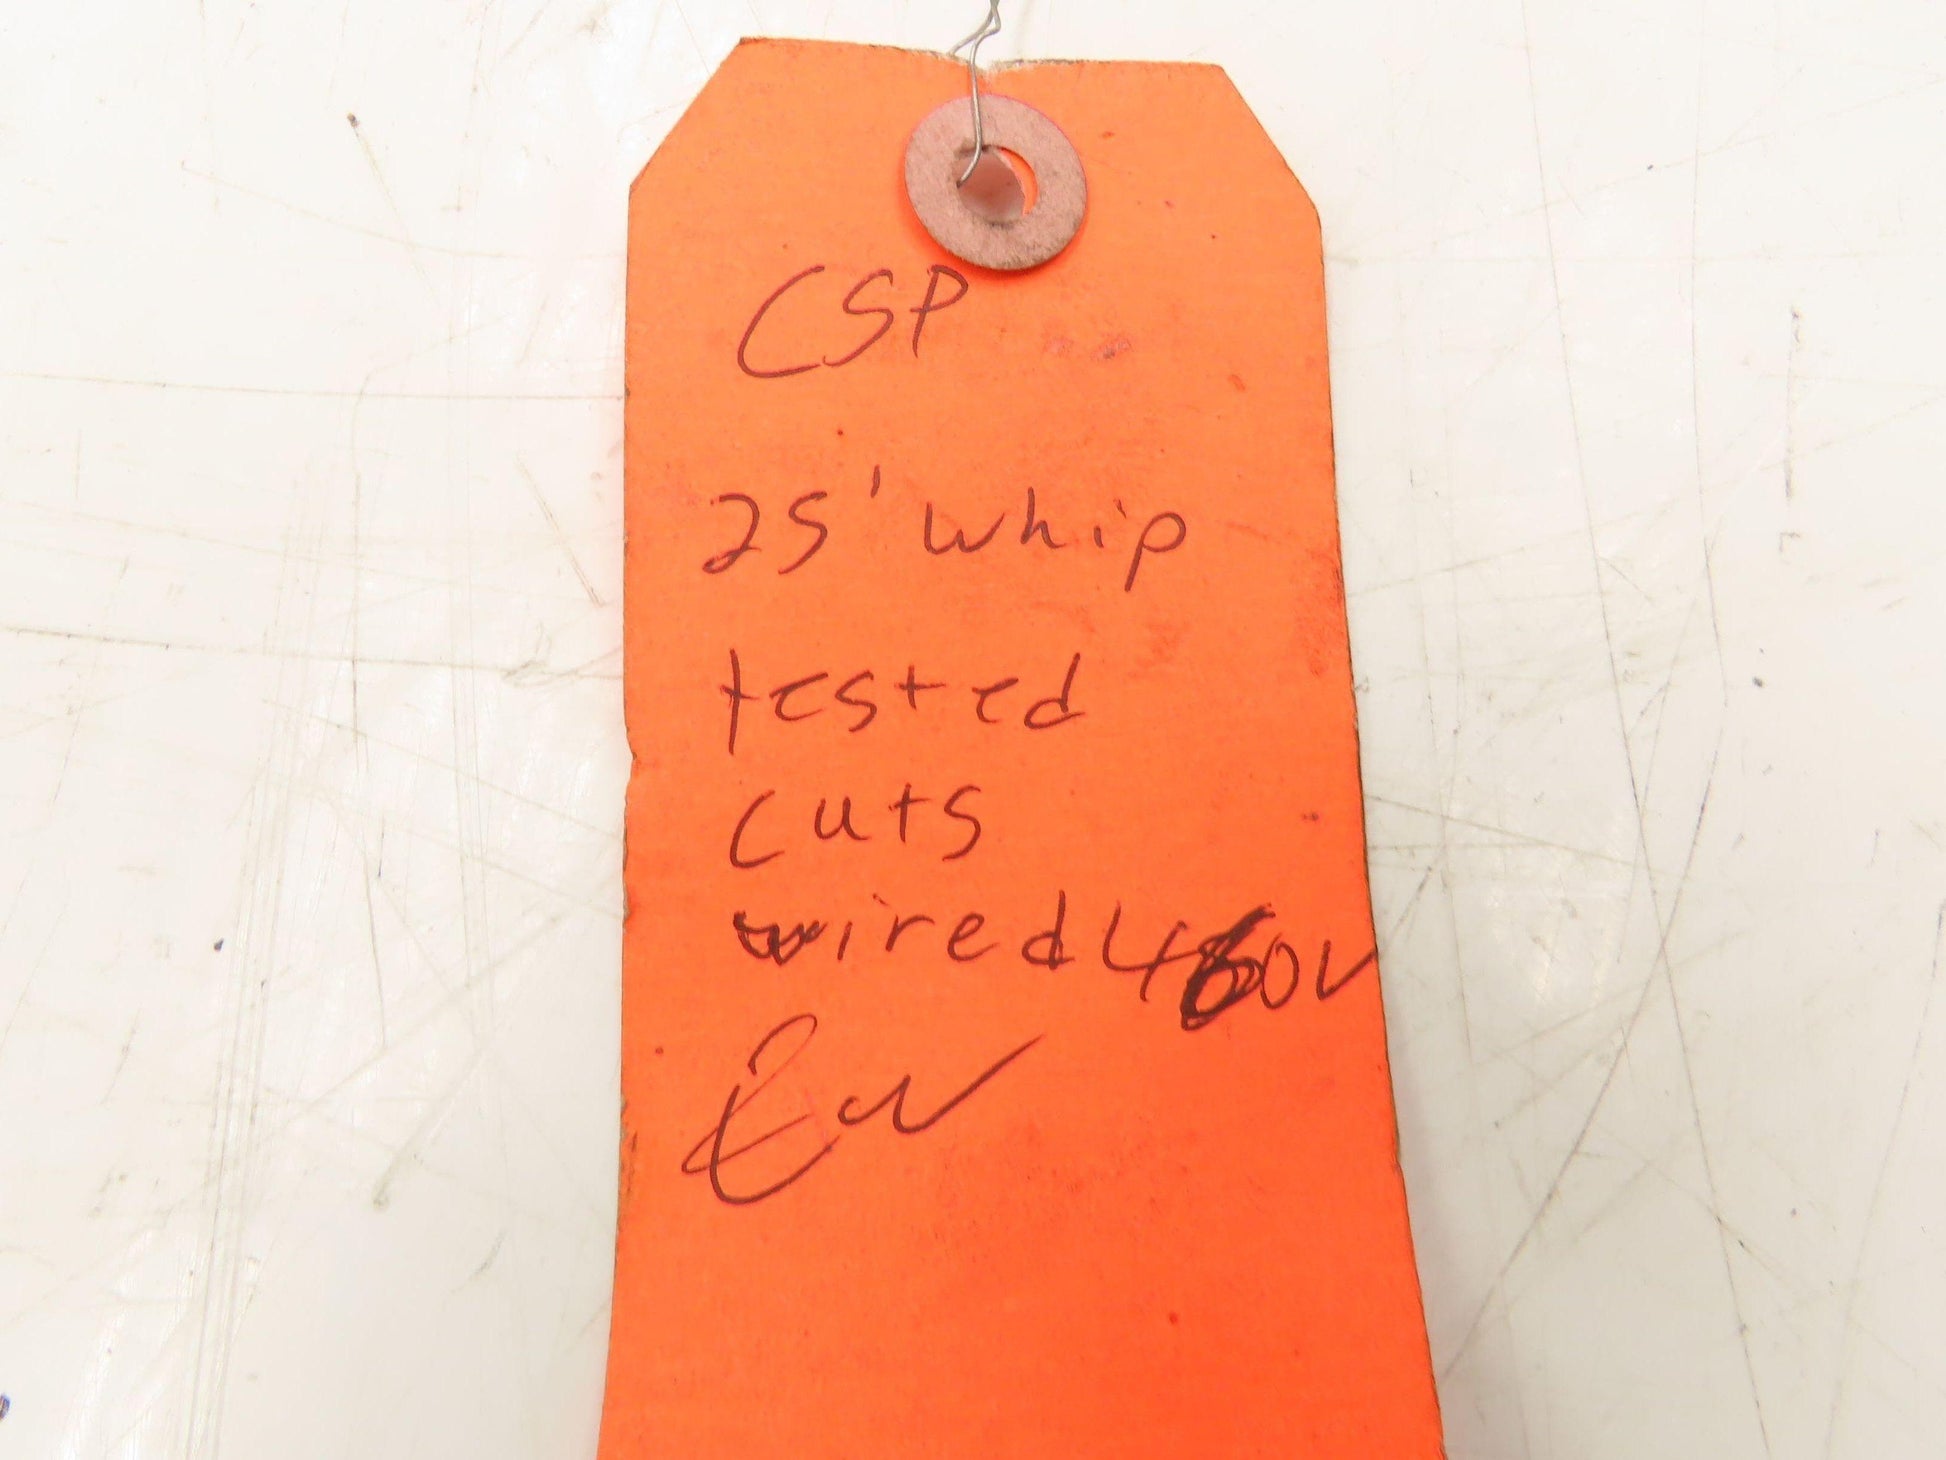 CSP
25' whip
tested
cuts
wired 460V